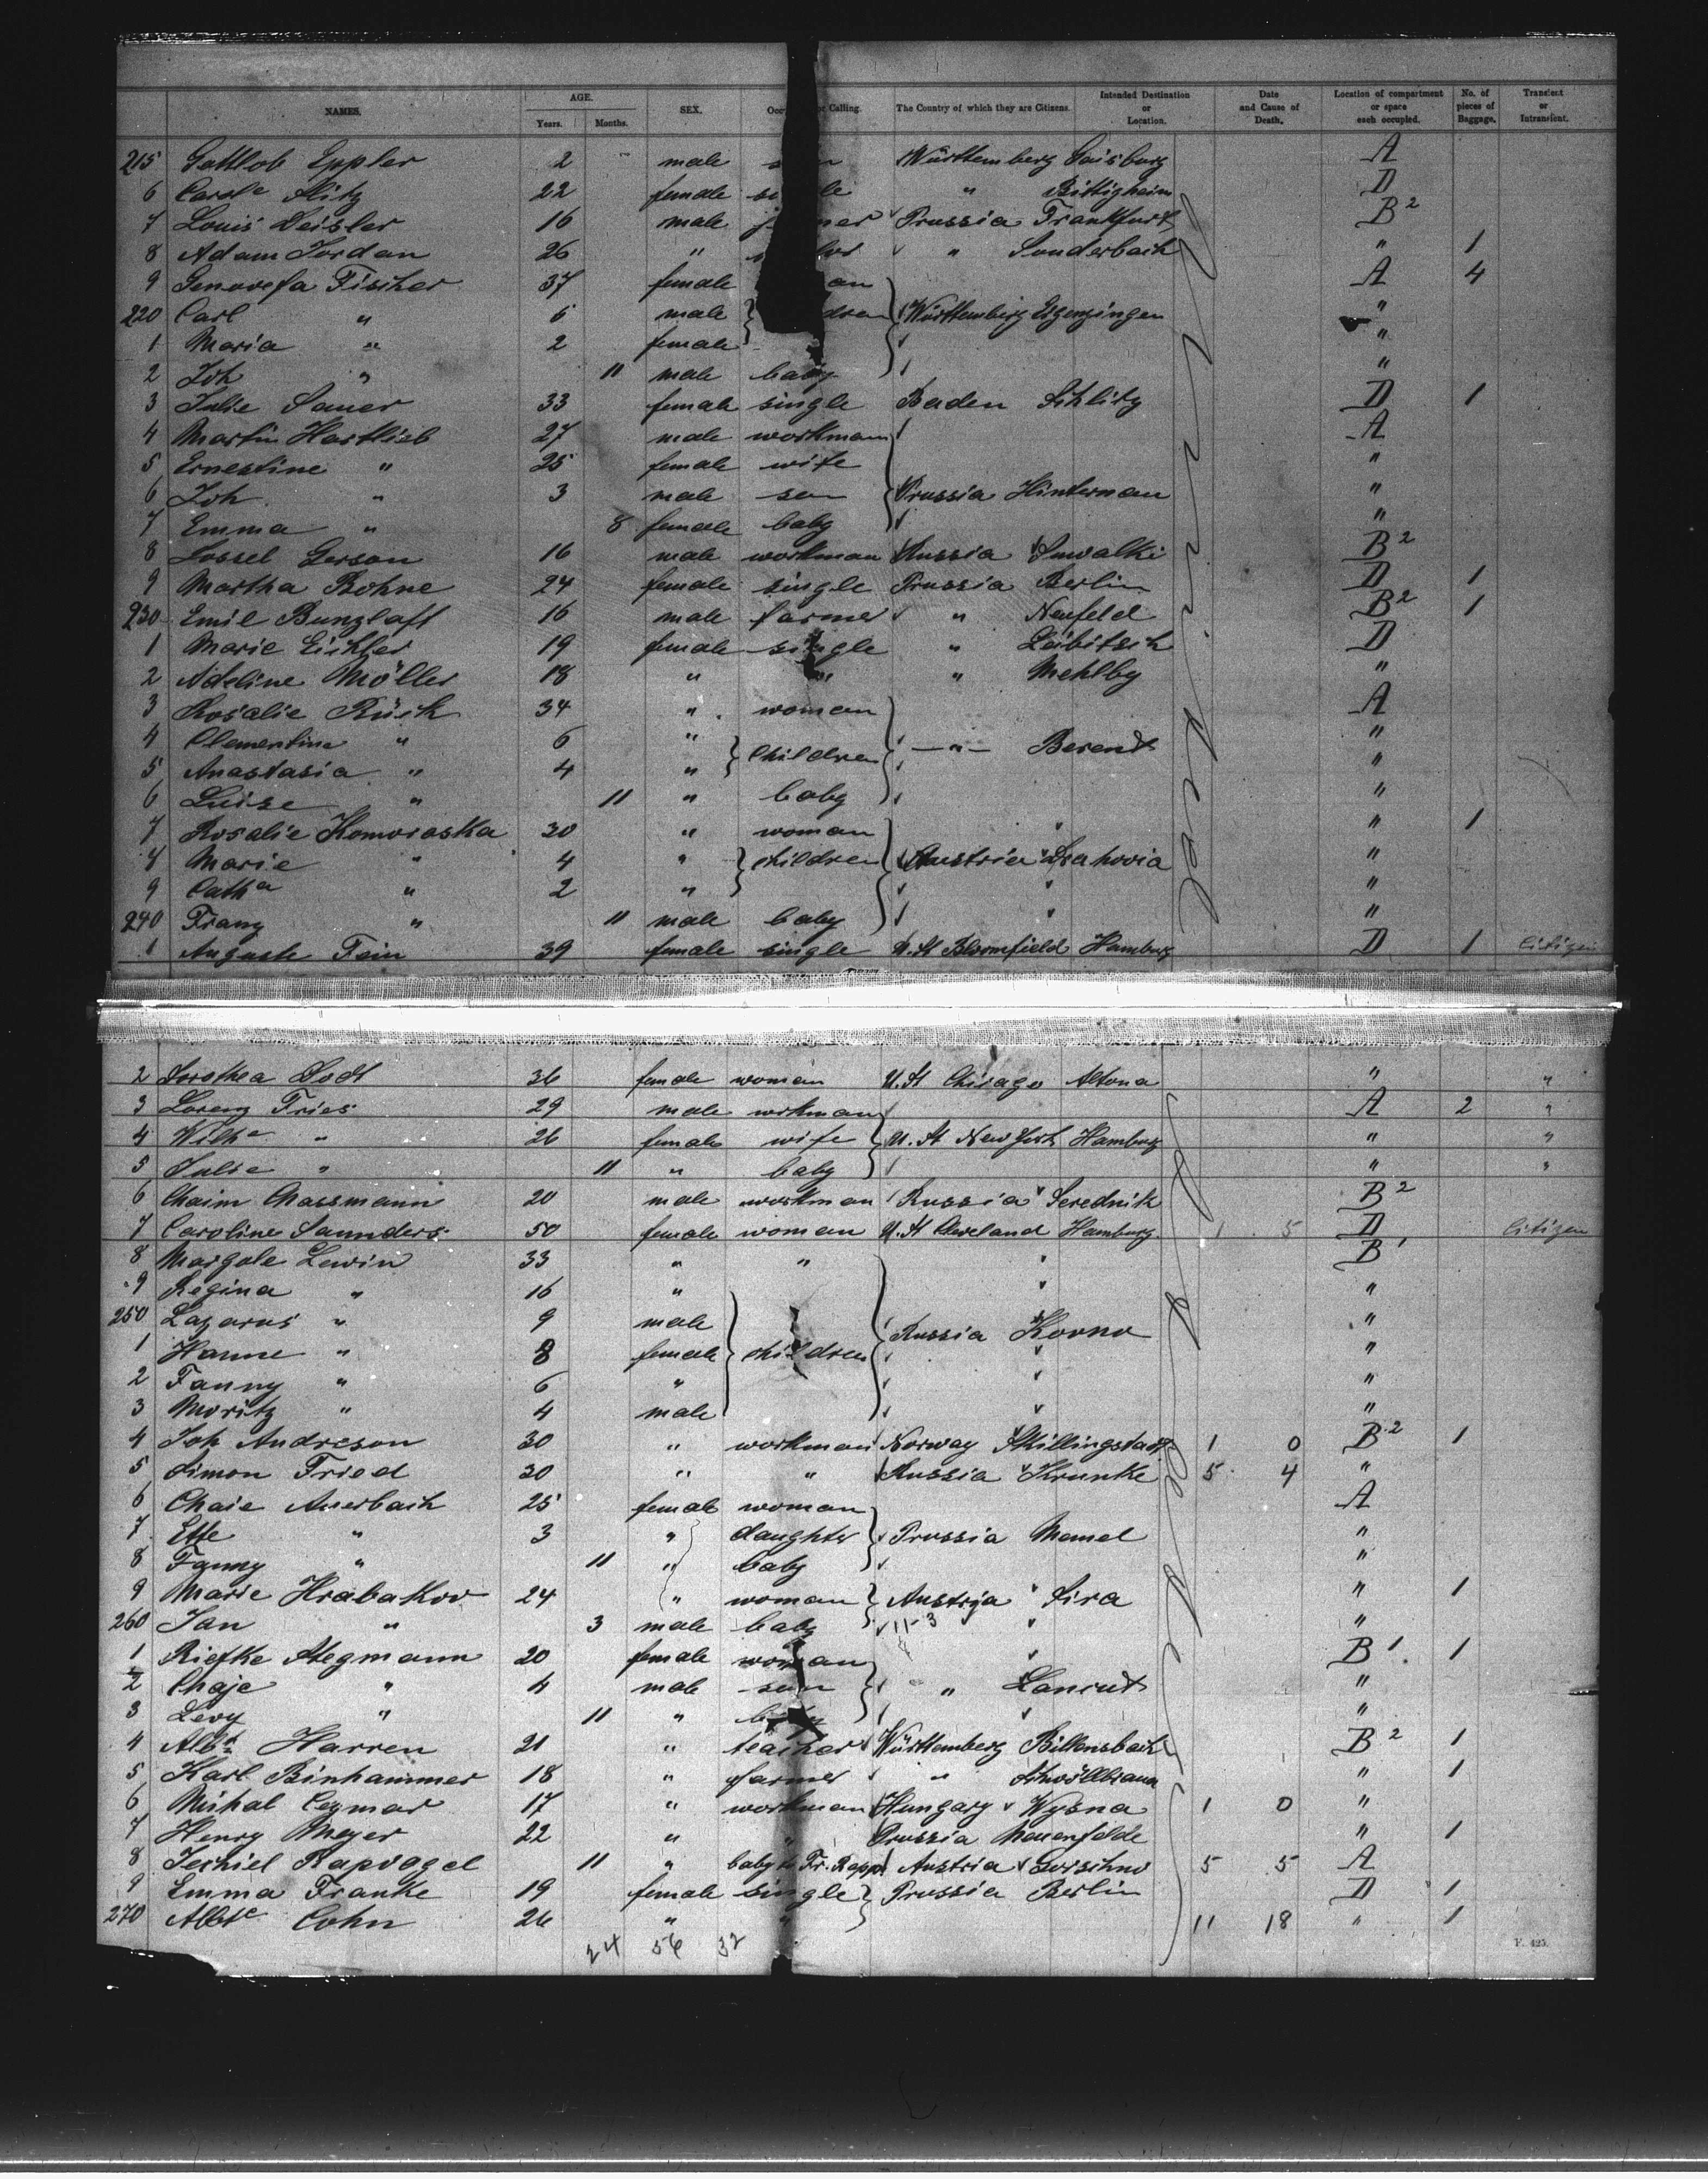 NAMES. AGE. Years. Months. SEX. Calling. The Country of which they are Citizens. Intended Destination or Location. Date and Cause of Death. Location of compartment or space each occupied. No. of pieces of Baggage. Transient or Intransient.
215 Gottlob Eppler 2 male Württemberg Gaisburg A
6 22 female " Bittigheim D
7 Louis 16 male Prussia Frankfurt B2
8 Adam Jordan 26 " " Sonderbach " 1
9 Genovefa Fischer 37 female A 4
220 Carl " 6 male Württemberg "
1 Maria " 2 female "
2 Joh " 11 male baby "
3 Julie Sauer 33 female single Baden Schlitz D 1
4 Martin Hartlieb 27 male workman A
5 Ernestine " 25 female wife "
6 Joh " 3 male son Prussia "
7 Emma " 8 female baby "
8 Lossel Gerson 16 male workman Russia Suwalki B2
9 Martha Bohne 24 female single Prussia Berlin D 1
230 Emil Bunzlaff 16 male farmer " Neufeld B2 1
1 Marie Eichler 19 female single " Leibitsch D
2 Adeline Möller 18 " " " Mehlby "
3 Rosalie 34 " woman A
4 Clementine " 6 " children " Berendt "
5 Anastasia " 4 " "
6 Luise " 11 " baby "
7 Rosalie Komoraska 30 " woman " 1
8 Marie " 4 " children Austria "
9 Catha " 2 " "
240 Franz " 11 male baby "
1 Auguste Fein 39 female single U. St Bloomfield Hamburg D 1 Citizen
2 Dorothea Dodt 36 female woman U. St Chicago Altona " "
3 Lorenz Fries 29 male wrkman A 2 "
4 Wilhe " 26 female wife U. St New York Hamburg " "
5 Julie " 11 " baby " "
6 Chaim Chassmann 20 male workman Russia Serednik B2
7 Caroline Saunders 50 female woman U. St Cleveland Hamburg 1 5 D Citizen
8 Margole Lewin 33 " " B1
9 Regina " 16 " "
250 Lazarus " 9 male Russia Kovno "
1 Hanne " 8 female children "
2 Fanny " 6 " "
3 Moritz " 4 male "
4 Joh Andreson 30 " workman Norway Skillingstadt 1 0 B2 1
5 Simon Fried 30 " " Russia Krunke 5 4 "
6 Chaie Auerbach 25 female woman A
7 Ette " 3 " daughter Prussia Memel "
8 Fanny " 11 " baby "
9 Marie Hrabakov 24 " woman Austria Sira " 1
260 Jan " 3 male baby 11-3 "
1 Riefke Stegmann 20 female woman B1 1
2 Chaje " 4 male son " Lancut "
3 Levy " 11 " baby "
4 Albt Harren 21 " teacher Württemberg Billensbach B2 1
5 Karl Binhammer 18 " farmer " " 1
6 Michal Cezmar 17 " workman Hungary Wysna 1 0 "
7 Henry Meyer 22 " " Prussia Neuenfelde " 1
8 Jechiel Rapvogel 11 " baby to Fr. Rapp Austria 5 5 A
9 Emma Franke 19 female single Prussia Berlin D 1
270 Albte Cohn 26 " " 11 18 " 1
24 56 32
F. 425.